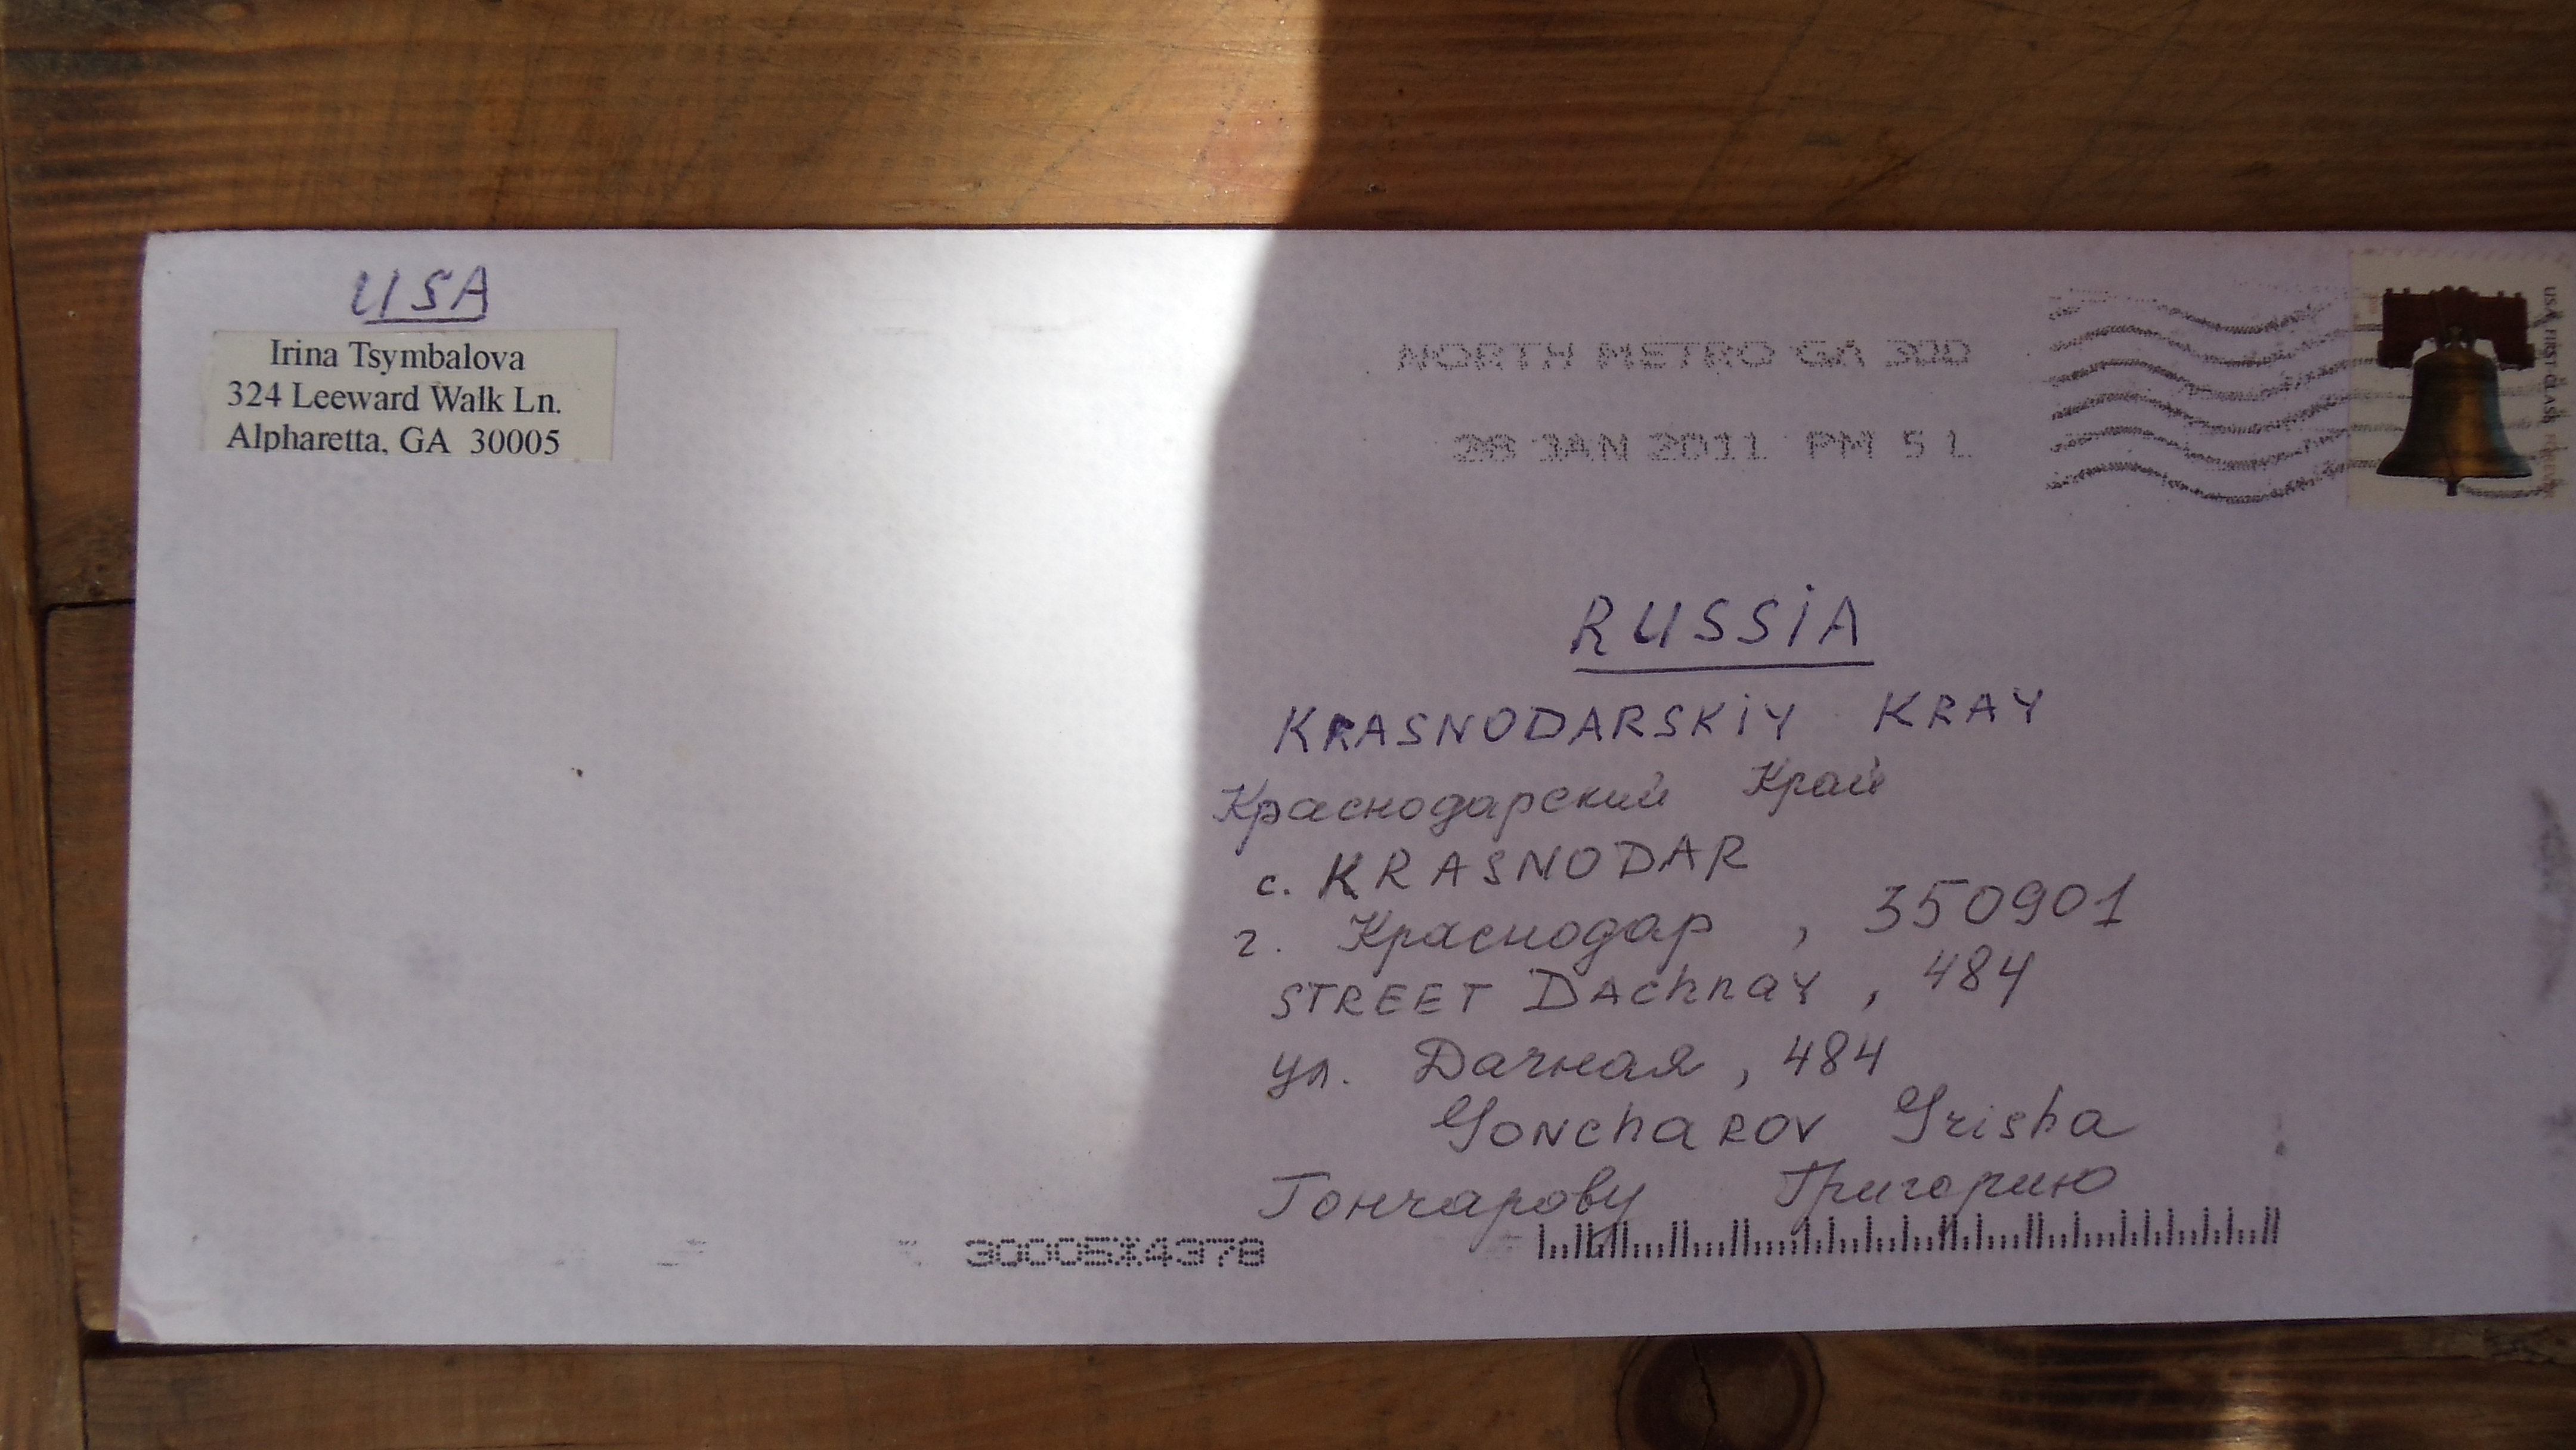 USA
Irina Tsymbalova
324 Leeward Walk Ln.
Alpharetta, GA 30005
NORTH METRO GA 300
28 JAN 2011 PM 5 L
USA FIRST-CLASS FOREVER
RUSSIA
KRASNODARSKIY KRAY
Краснодарский Край
c. KRASNODAR
г. Краснодар , 350901
STREET DAchnaY , 484
ул. Дачная , 484
GONchaROV Grisha
Гончарову Григорию
30005*4378